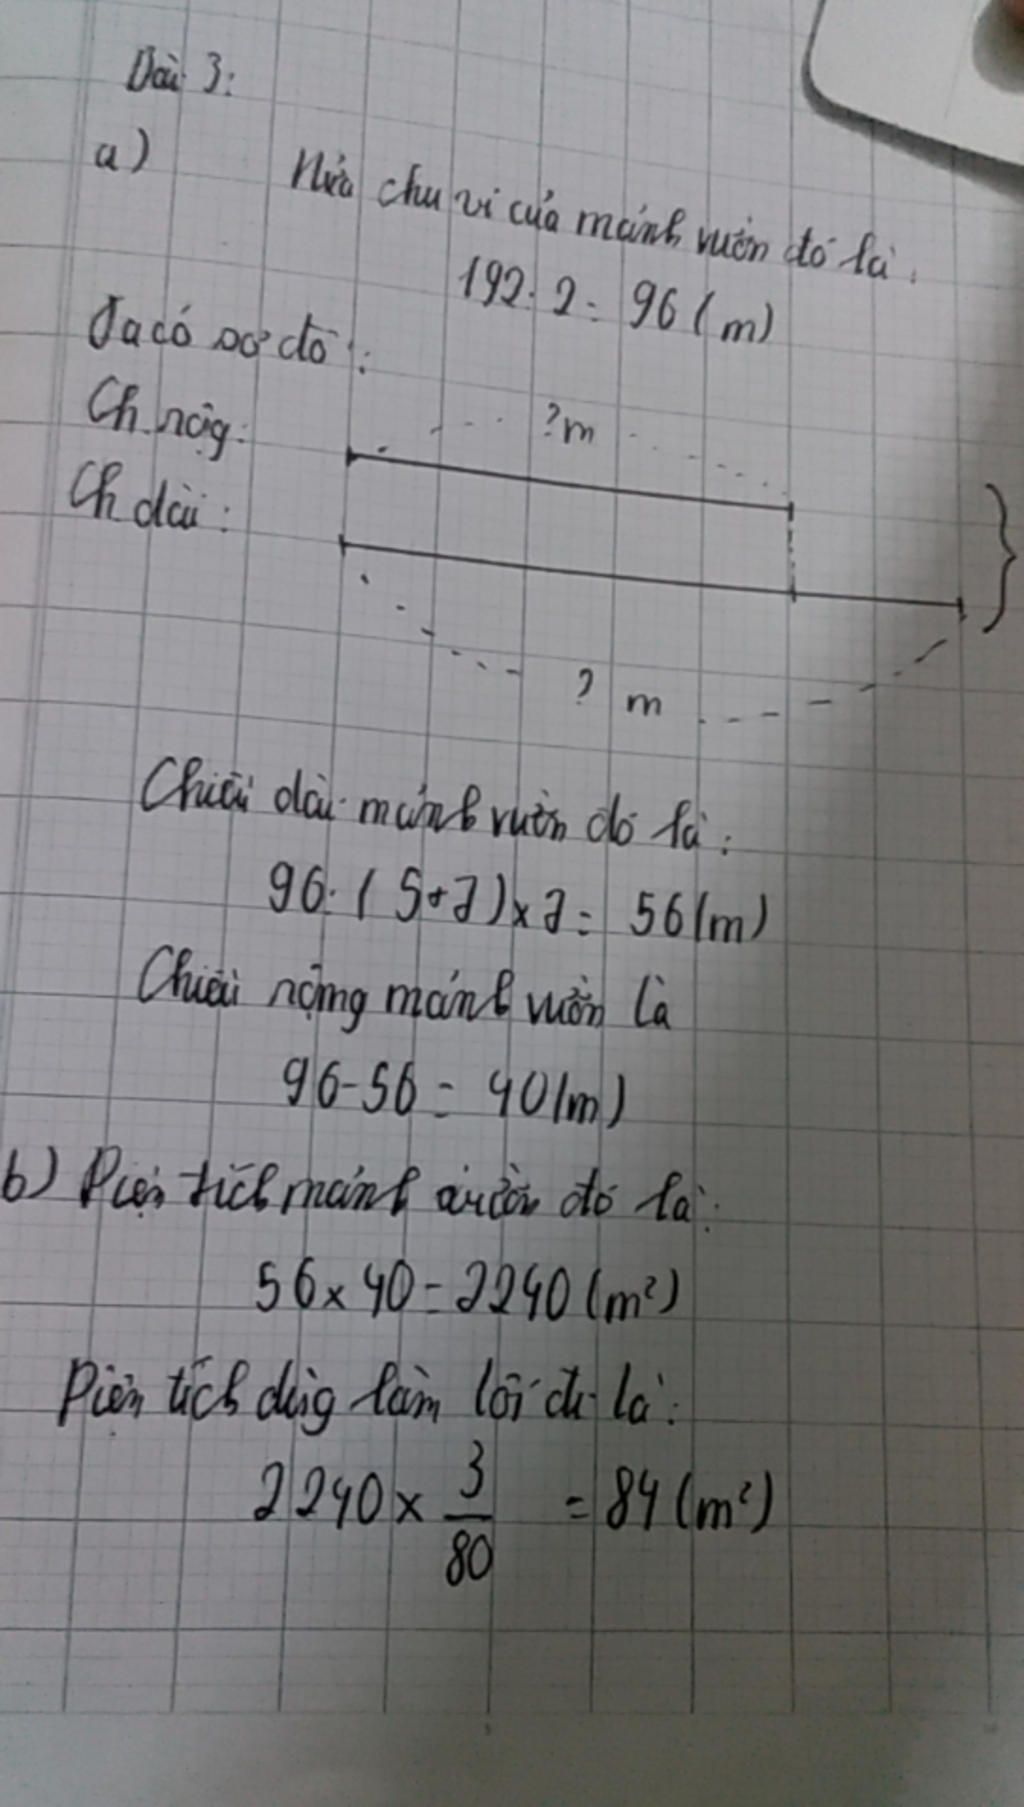 Bài 3:
a) Nửa chu vi của mảnh vườn đó là:
192 : 2 = 96 (m)
Ta có sơ đồ :
Ch rộng: ?m
Ch dài :
? m
Chiều dài mảnh vườn đó là :
96 : (5+7) x 7 = 56 (m)
Chiều rộng mảnh vườn là
96 - 56 = 40 (m)
b) Diện tích mảnh vườn đó là:
56 x 40 = 2240 (m²)
Diện tích dùng làm lối đi là :
2240 x 3/80 = 84 (m²)